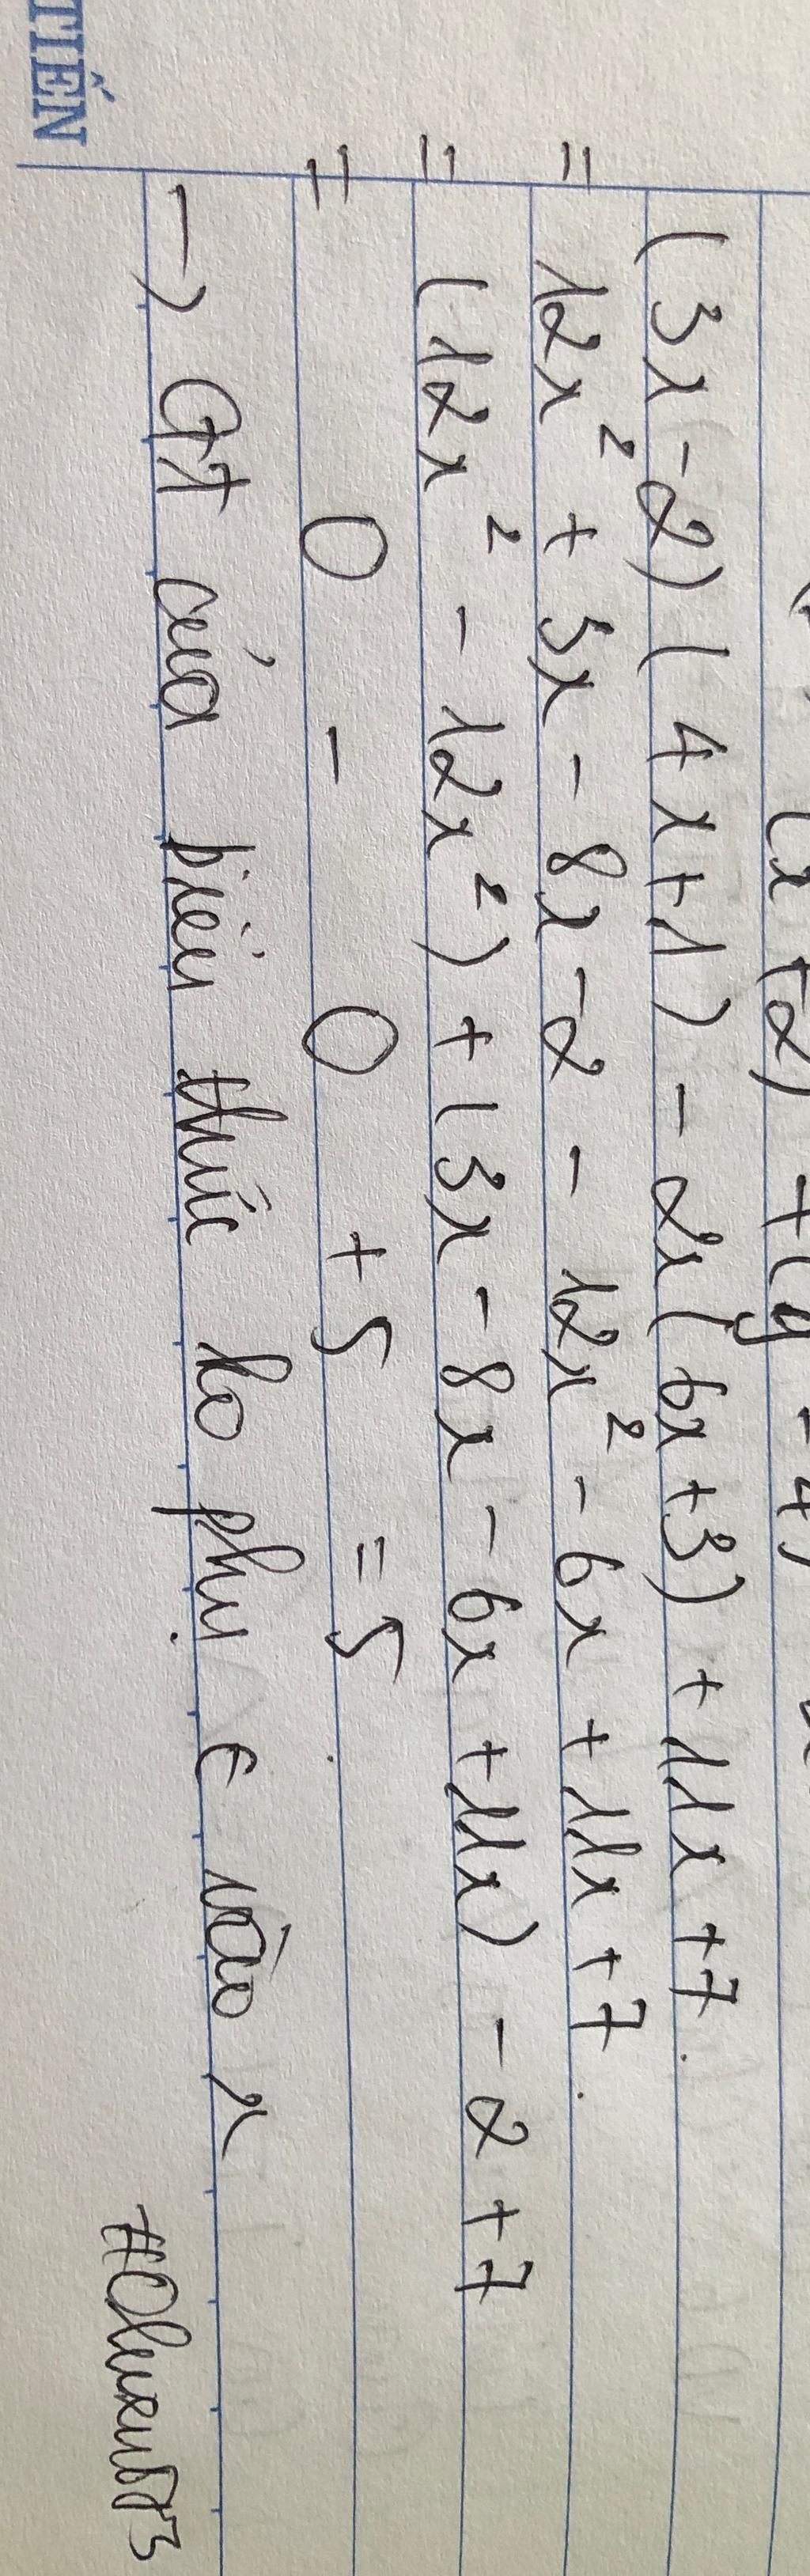 (x+2) + (y - 4)
(3x-2) (4x+1) - 2x(6x+3) + 11x+7.
= 12x² + 3x - 8x - 2 - 12x² - 6x + 11x + 7.
= (12x² - 12x²) + (3x - 8x - 6x + 11x) - 2 + 7
= 0 - 0 + 5 = 5
→ GT của biểu thức ko phụ € vào x
TIẾN